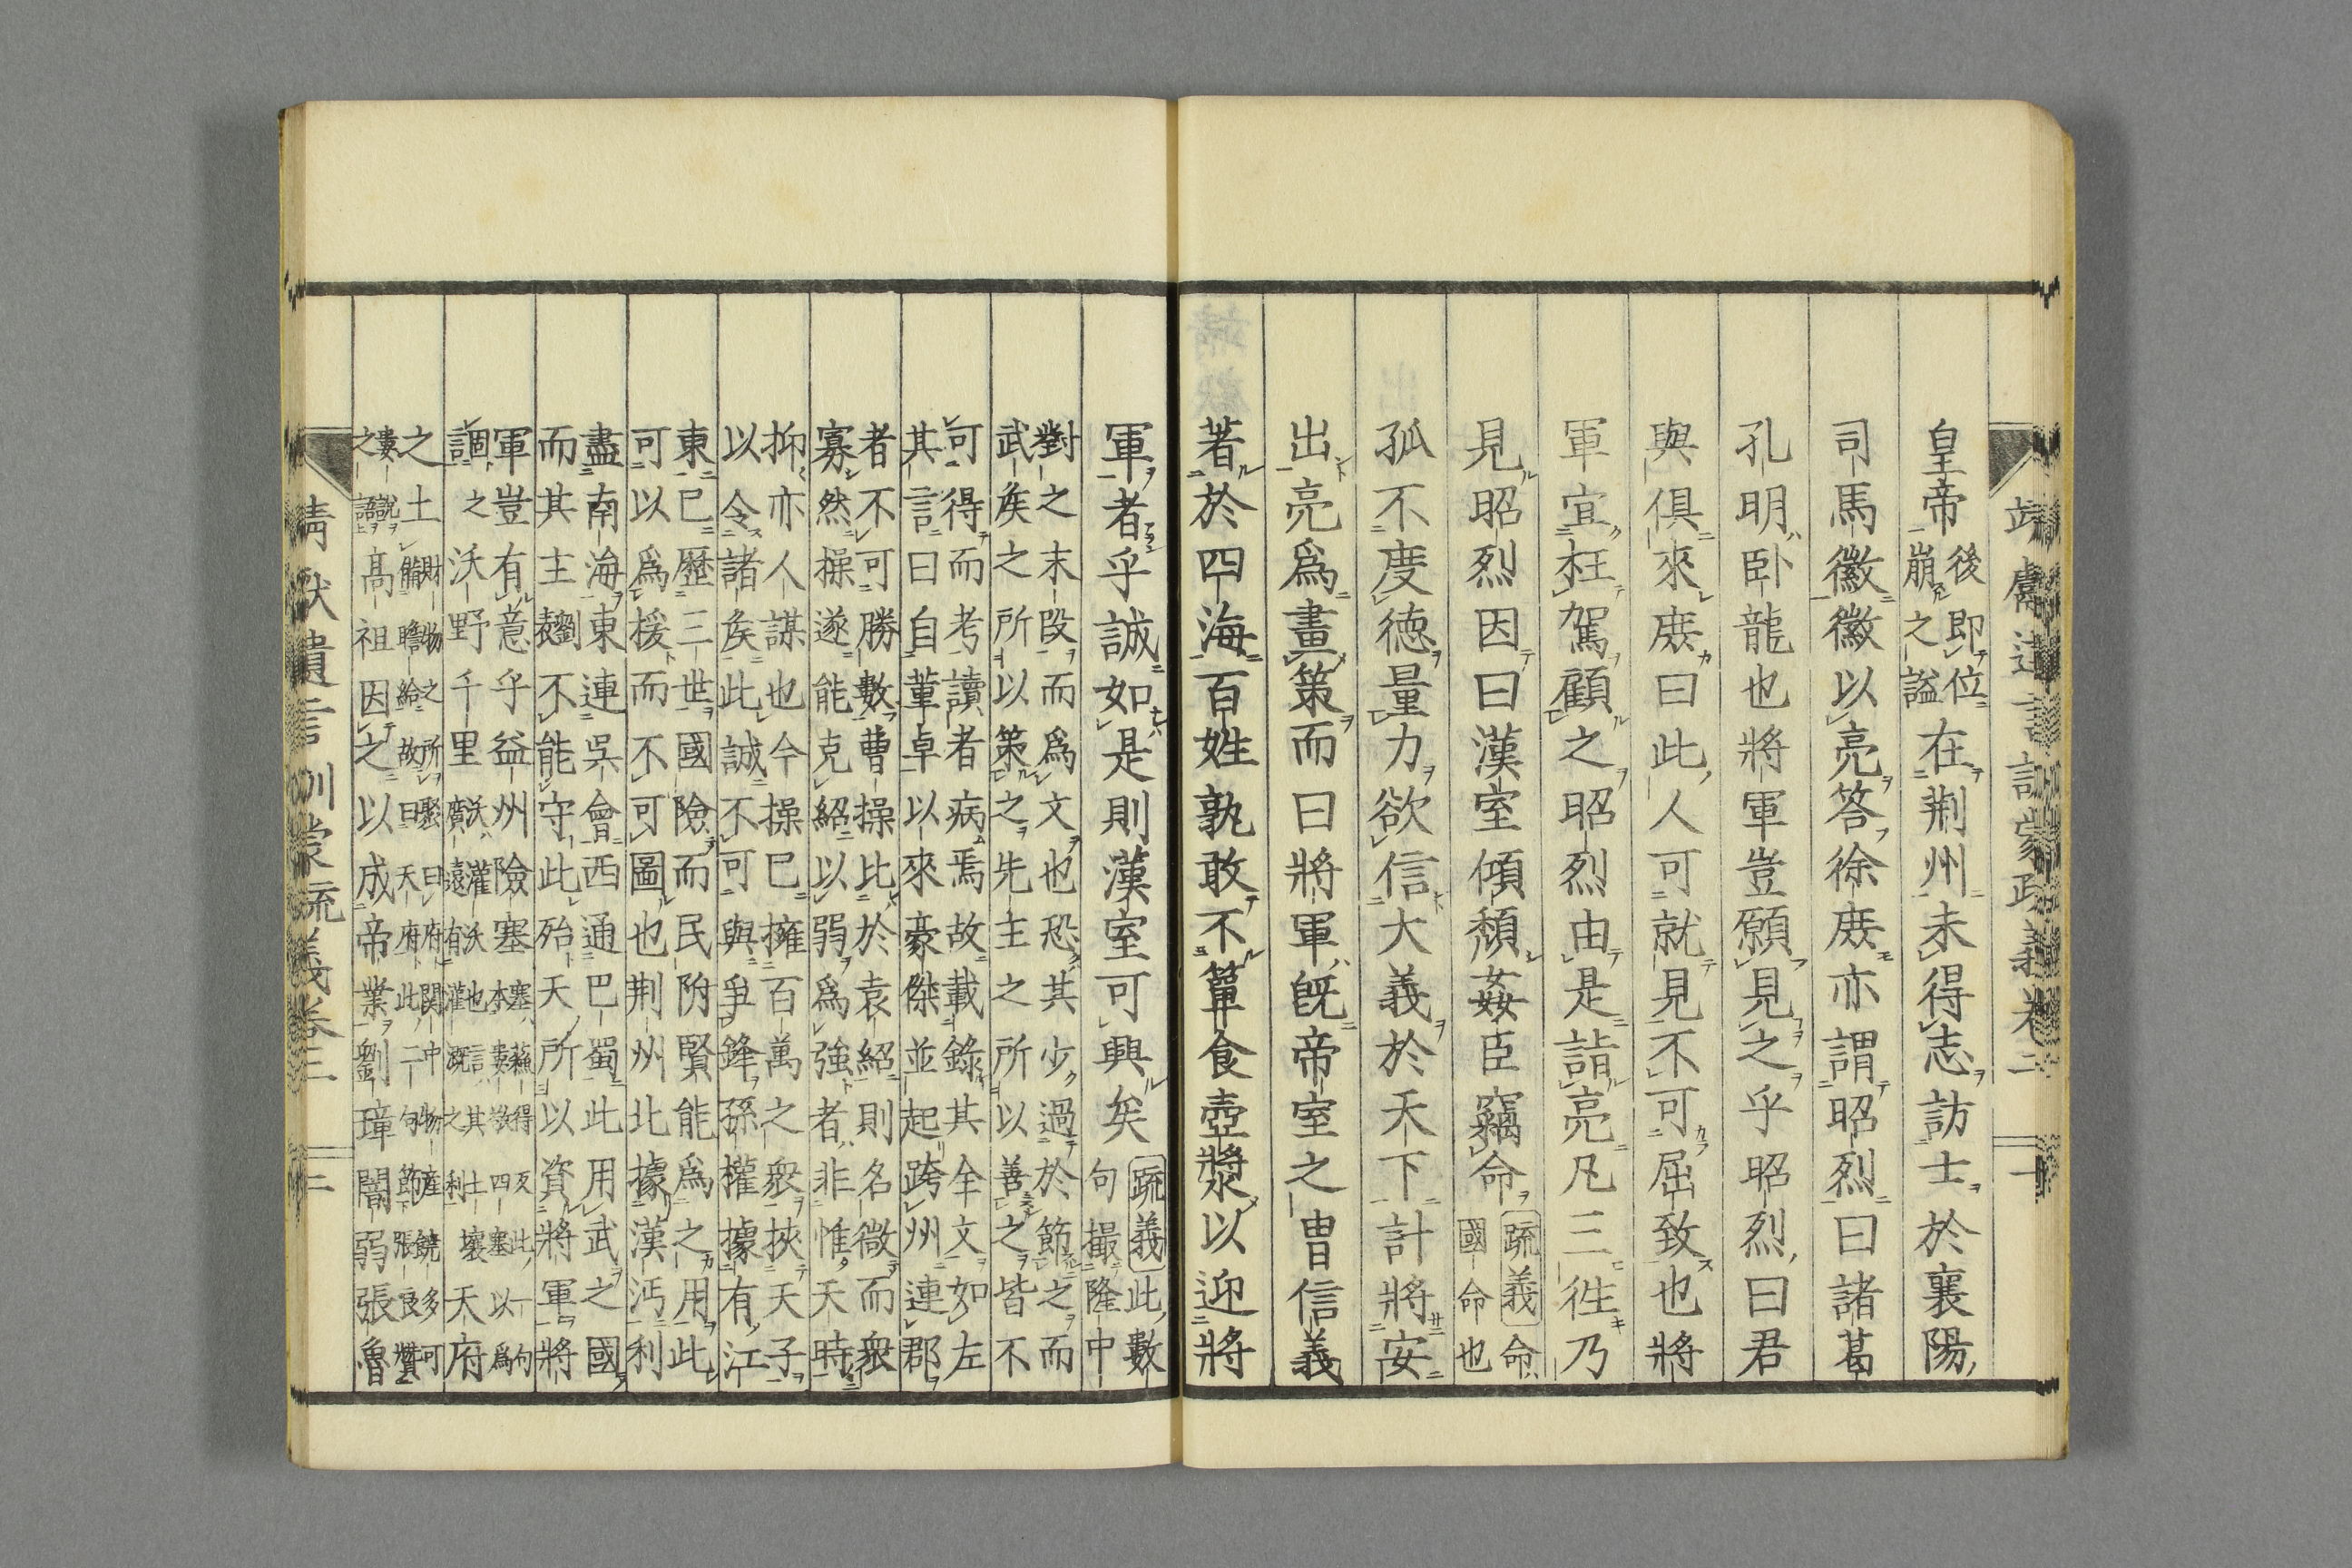 靖獻遺言訓蒙疏義卷二 一
皇帝後即位崩之謚在荆州未得志訪士於襄陽
司馬徽徽以亮答徐庶亦謂昭烈曰諸葛
孔明卧龍也將軍豈願見之乎昭烈曰君
與俱來庶曰此人可就見不可屈致也將
軍宜枉駕顧之昭烈由是詣亮凡三徃乃
見昭烈因曰漢室傾頽姦臣竊命疏義命國命也
孤不度德量力欲信大義於天下計將安
出亮爲畫策而曰將軍既帝室之冑信義
著於四海百姓孰敢不簞食壺漿以迎將
軍者乎誠如是則漢室可興矣疏義此數句撮隆中
對之末段而爲文也恐其少過於節之而
武矦之所以策之先主之所以善之皆不
可得而考讀者病焉故載錄其全文如左
其言曰自董卓以來豪傑並起跨州連郡
者不可勝數曹操比於袁紹則名微而衆
寡然操遂能克紹以弱爲強者非惟天時
抑亦人謀也今操已擁百萬之衆挾天子
以令諸矦此誠不可與爭鋒孫權據有江
東已歷三世國險而民附賢能爲之用此
可以爲援而不可圖也荆州北據漢沔利
盡南海東連吳會西通巴蜀此用武之國
而其主劉表不能守此殆天所以資將軍將
軍豈有意乎益州險塞塞蘇得反此一句本婁敬四塞以爲
固之沃野千里沃灌沃也言其土壤廣遠有灌漑之利天府
之土財物之所聚曰府関中物産饒多可備贍給故曰天府此二句節張良贊
婁說之語高祖因之以成帝業劉璋闇弱張魯
靖獻遺言訓蒙疏義卷二 二